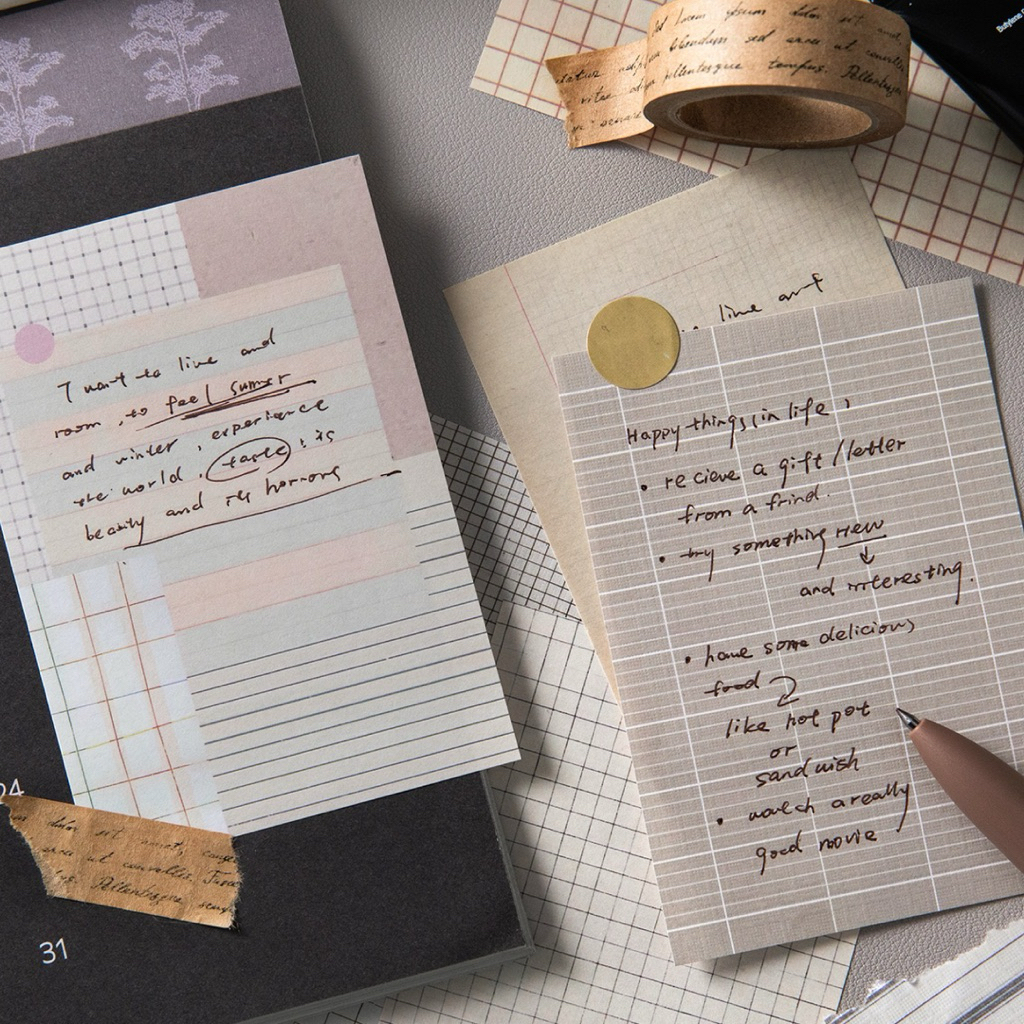 et Lorem ipsum dolor sit amet
blandum sed arcu at convallis
vitae Pellentesque tempus. Pellentesque
Butylene
I want to live and
room , to feel summer
and winter , experience
the world. taste : is
beauty and its horrors
line and
Happy things in life ,
• recieve a gift / letter
from a frind.
• try something new
↓
and interesting.
• have some delicious
food
like hot pot
or
sandwish
• watch a really
good movie
24
dolor sit amet, conse
arcu at convallis. Fusce
Pellentesque temp
31